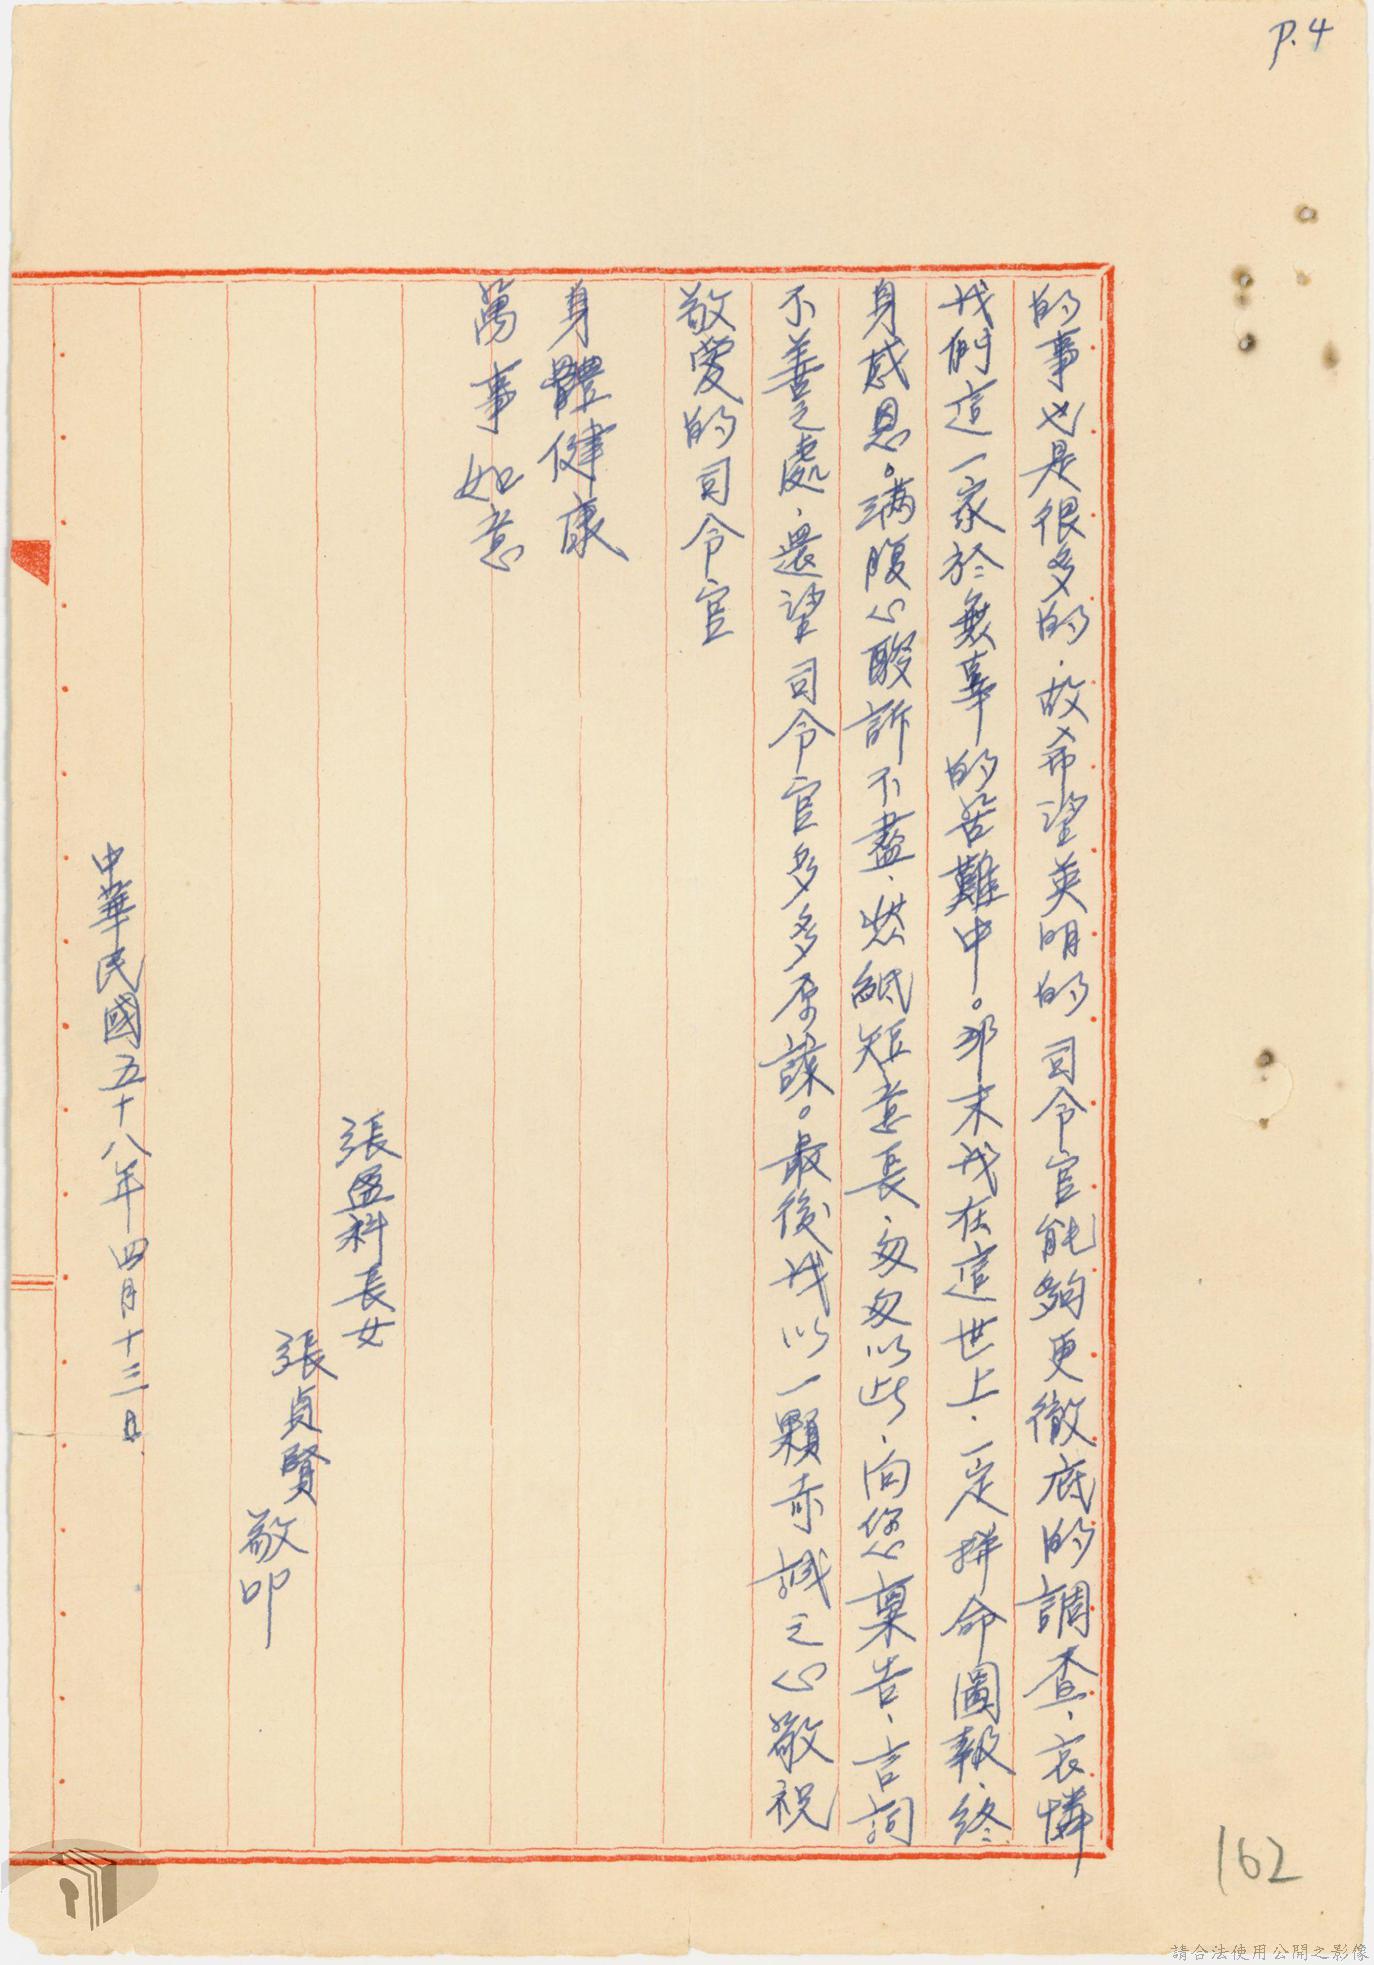 P.4
的事也是很多的，故希望英明的司令官能夠更徹底的調查，哀憐
我們這一家於無辜的苦難中。那末我在這世上，一定拼命圖報，終
身感恩。滿腹心酸訴不盡，愁紙短意長，匆匆以此，向您稟告，言詞
不善之處，還望司令官多多原諒。最後我以一顆赤誠之心敬祝
敬愛的司令官
身體健康
萬事如意
張盛科長女
張貞賢
敬叩
中華民國五十八年四月十三日
162
請合法使用公開之影像